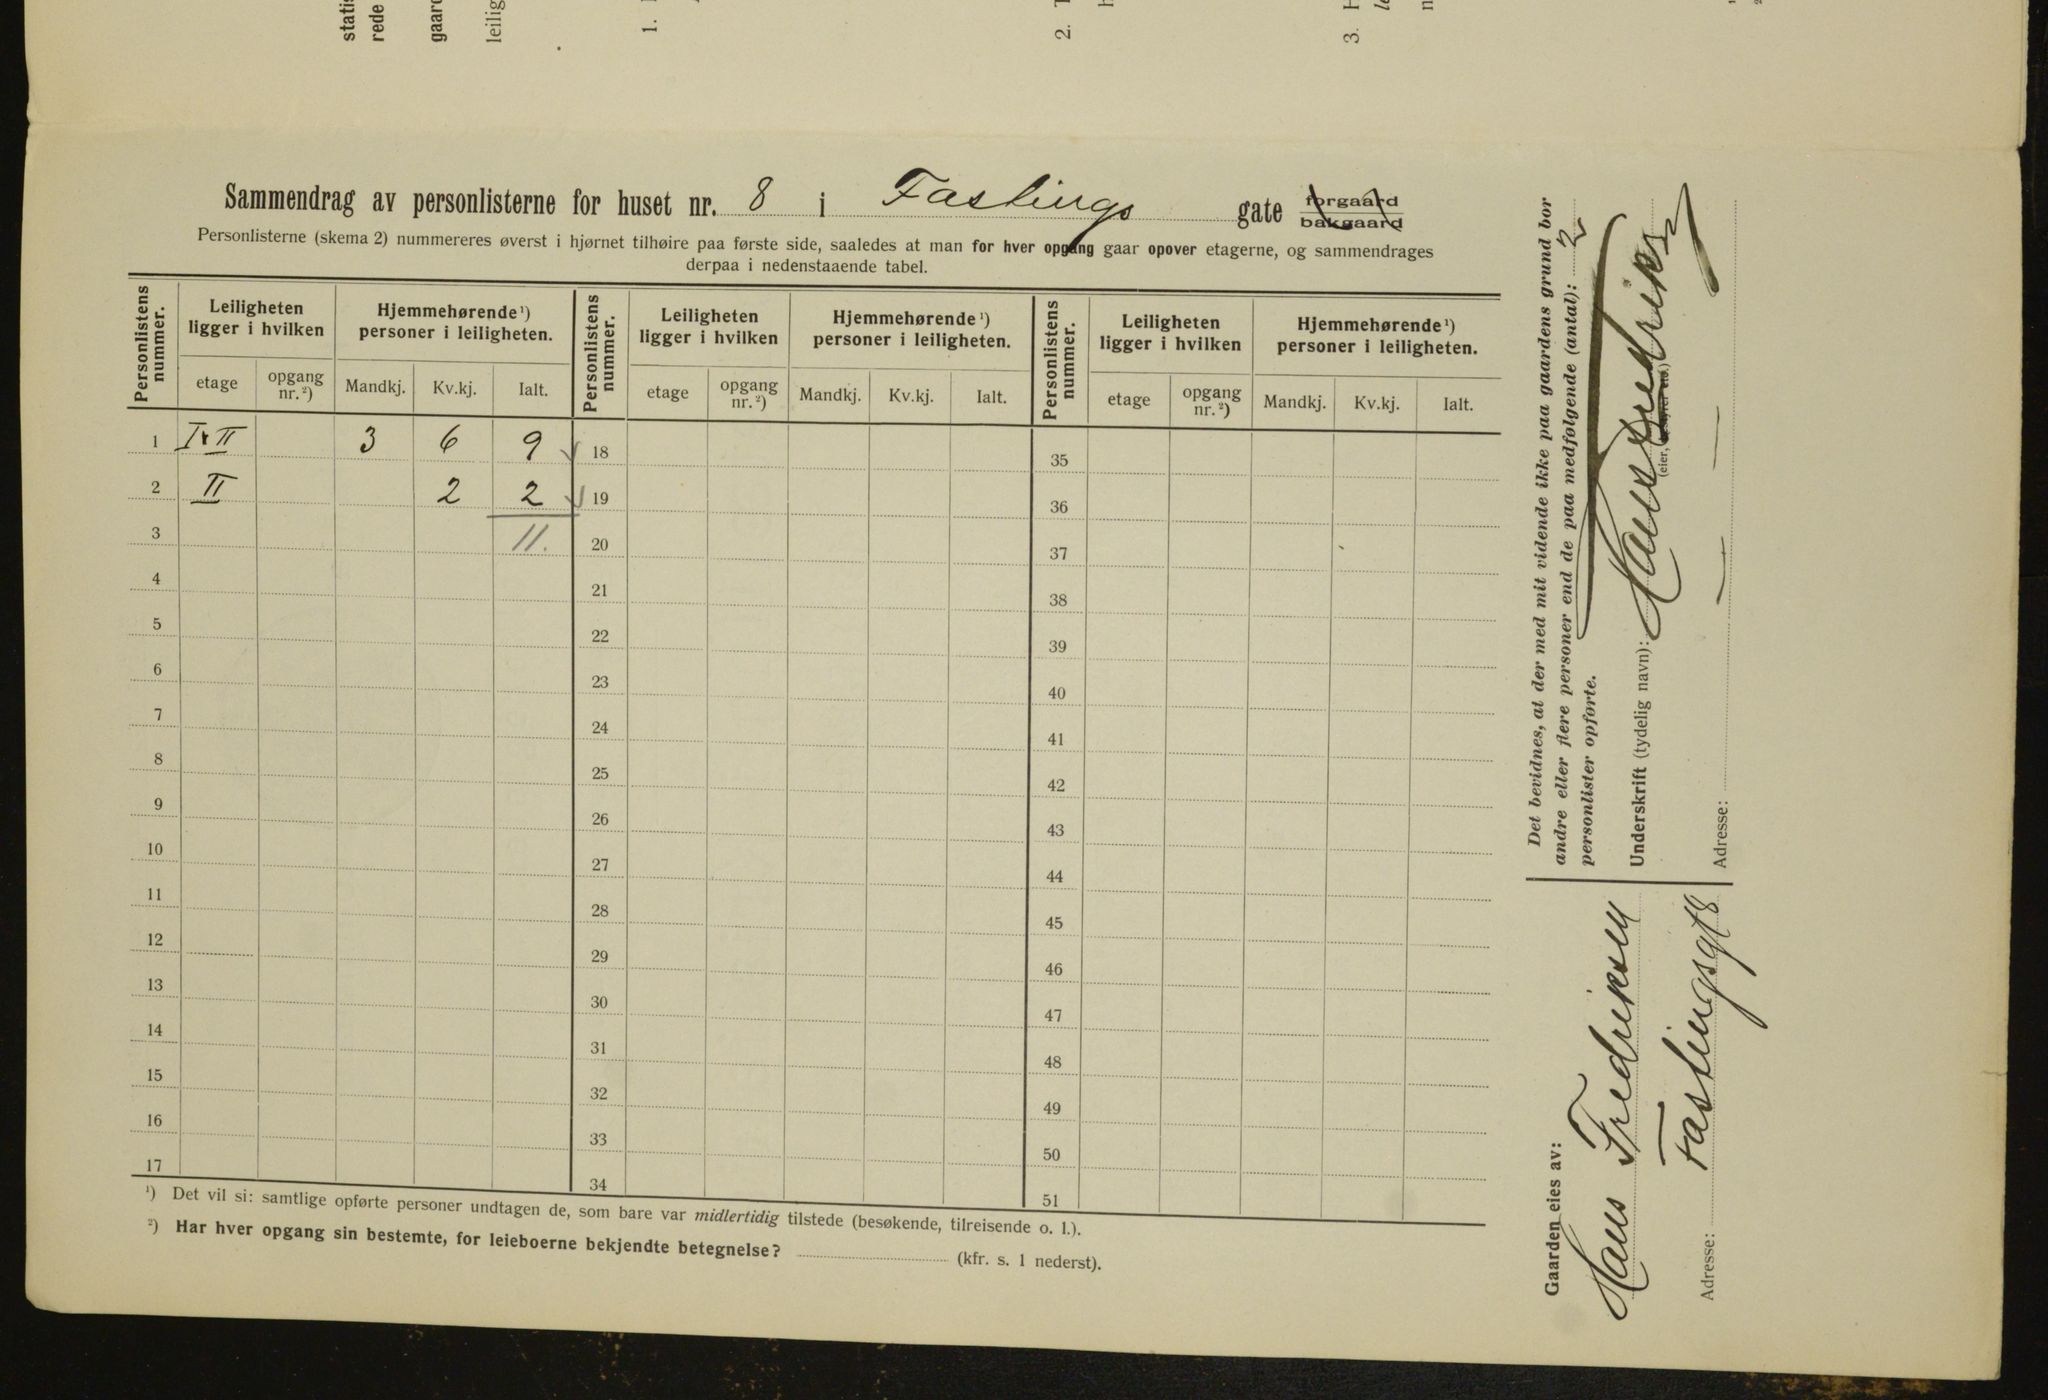 statis
rede
gaard
leilig
1.
2. T
h
3. H
le
n
Sammendrag av personlisterne for huset nr. 8 i Fastings gate forgaard
bakgaard
Personlisterne (skema 2) nummereres øverst i hjørnet tilhøire paa første side, saaledes at man for hver opgang gaar opover etagerne, og sammendrages
derpaa i nedenstaaende tabel.
Personlistens nummer. Leiligheten ligger i hvilken Hjemmehørende ¹) personer i leiligheten. Personlistens nummer. Leiligheten ligger i hvilken Hjemmehørende ¹) personer i leiligheten. Personlistens nummer. Leiligheten ligger i hvilken Hjemmehørende ¹) personer i leiligheten.
etage opgang nr. ²) Mandkj. Kv.kj. Ialt. etage opgang nr. ²) Mandkj. Kv.kj. Ialt. etage opgang nr. ²) Mandkj. Kv.kj. Ialt.
1 I+II 3 6 9 18 35
2 II 2 2 19 36
3 11. 20 37
4 21 38
5 22 39
6 23 40
7 24 41
8 25 42
9 26 43
10 27 44
11 28 45
12 29 46
13 30 47
14 31 48
15 32 49
16 33 50
17 34 51
¹) Det vil si: samtlige opførte personer undtagen de, som bare var midlertidig tilstede (besøkende, tilreisende o. l.).
²) Har hver opgang sin bestemte, for leieboerne bekjendte betegnelse? (kfr. s. 1 nederst).
Gaarden eies av:
Hans Fredriksen
Adresse: Fastingsgt 8
Det bevidnes, at der med mit vidende ikke paa gaardens grund bor
andre eller flere personer end de paa medfølgende (antal): 2
personlister opførte.
Underskrift (tydelig navn): Hans Fredriksen
(eier,
Adresse: — „ —